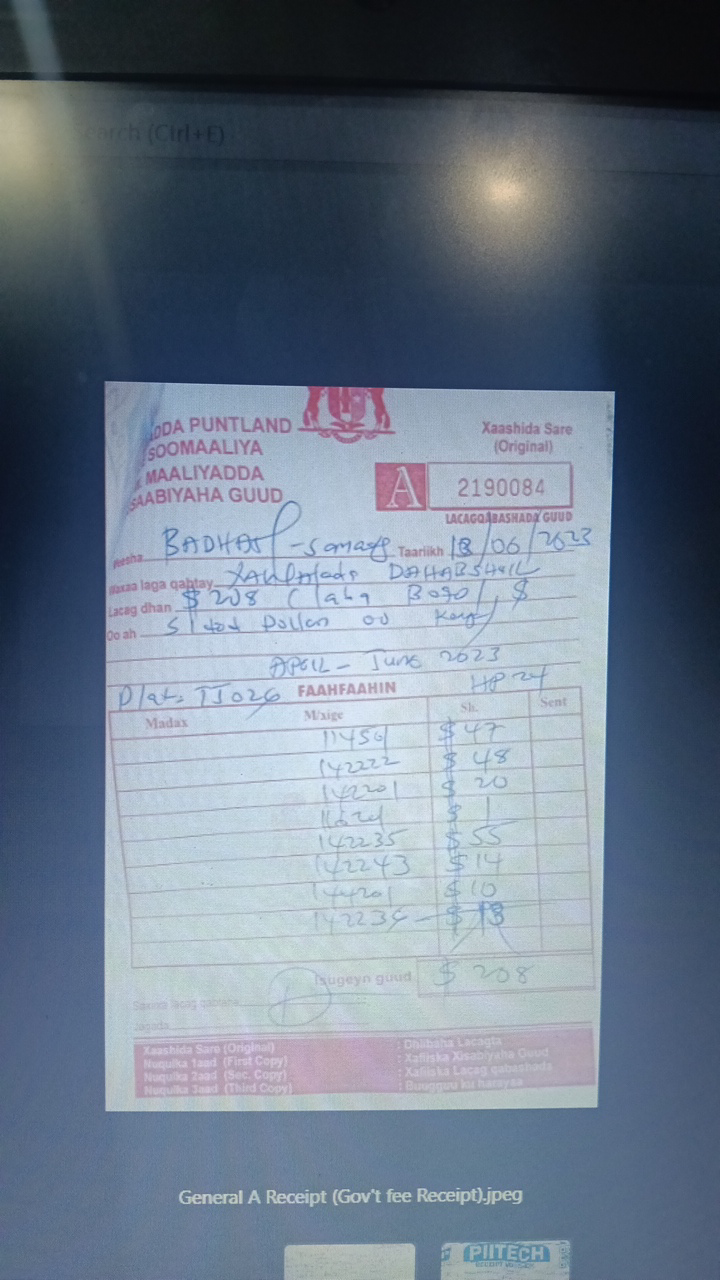 Search (Ctrl+E)
DDA PUNTLAND
SOOMAALIYA
MAALIYADDA
SAABIYAHA GUUD
Xaashida Sare
(Original)
A 2190084
LACAGQABASHADA GUUD
Resha BADHAN - Sanaag Taariikh 18/06/2023
Waxaa laga qabtay DAHABSHIIL
Lacag dhan $ 208 ( laba Boqol, $
Oo ah Sided Dollar oo
APRIL - June 2023
Plat. TJ026 FAAHFAAHIN HP 24
Madax M/xige Sh. Sent
11451 $ 47
142222 $ 48
142201 $ 20
$ 1
142235 $ 55
142243 $ 14
144201 $ 10
142234 - $ 13
Isugeyn guud $ 208
Saxiixa lacag qabtaha
Jagada
Xaashida Sare (Original) : Dhiibaha Lacagta
Nuqulka 1aad (First Copy) : Xafiiska Xisabiyaha Guud
Nuqulka 2aad (Sec. Copy) : Xafiiska Lacag qabashada
Nuqulka 3aad (Third Copy) : Buugguu ku harayaa
General A Receipt (Gov't fee Receipt).jpeg
PIITECH